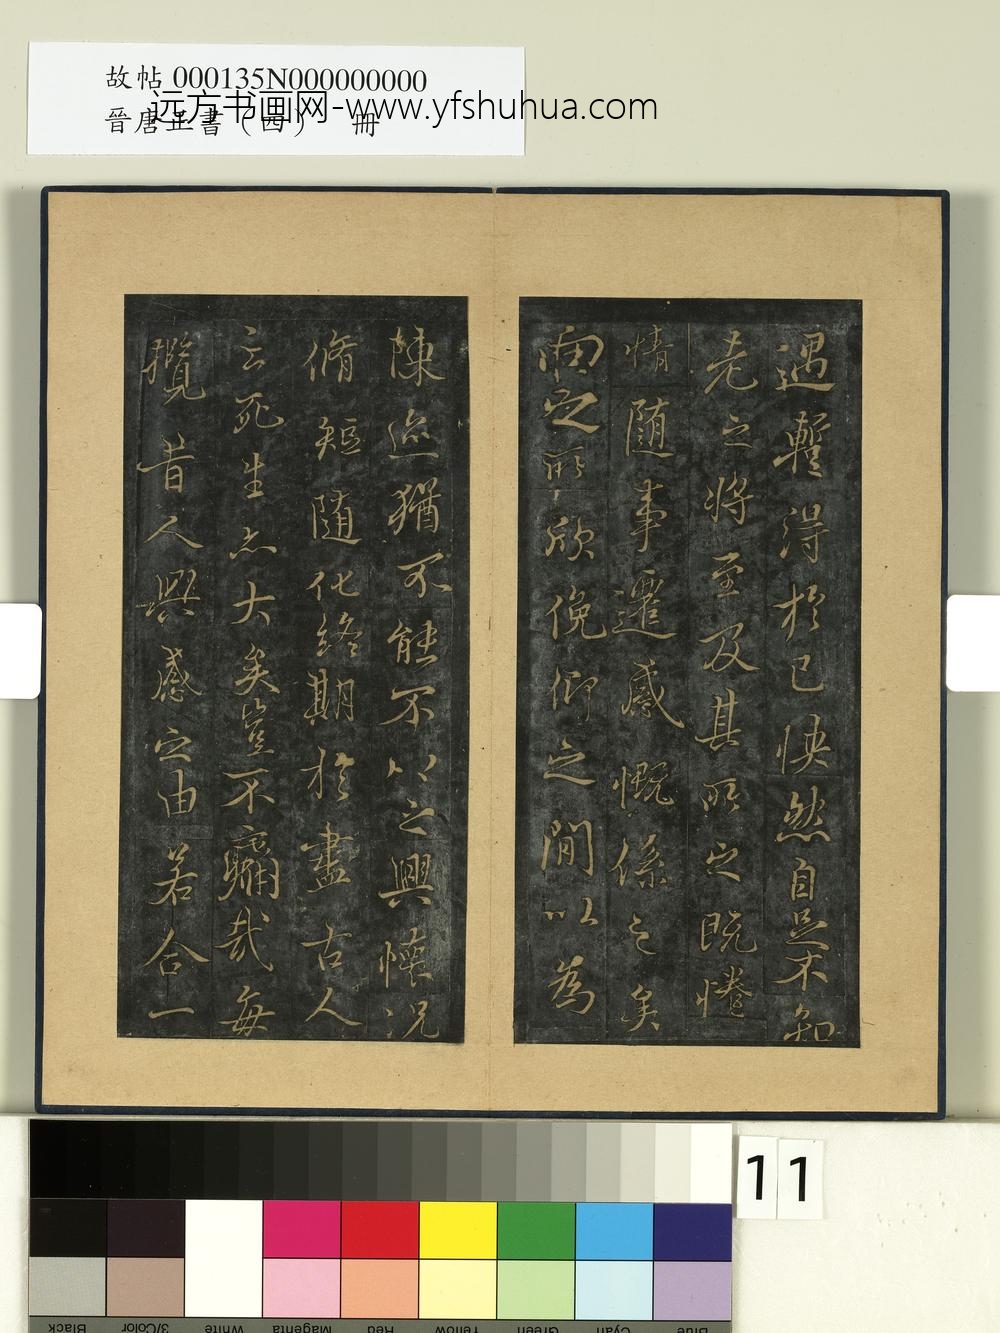 故帖 000135N000000000
晉唐正書（四） 冊
远方书画网-www.yfshuhua.com
遇蹔得於己快然自足不知
老之將至及其所之既惓
情隨事遷感慨係之矣
向之所欣俛仰之閒以為
陳迹猶不能不以之興懷況
脩短隨化終期於盡古人
云死生亦大矣豈不痛哉每
攬昔人興感之由若合一
11
Black
3/Color
White
Magenta
Red
Yellow
Green
Cyan
Blue